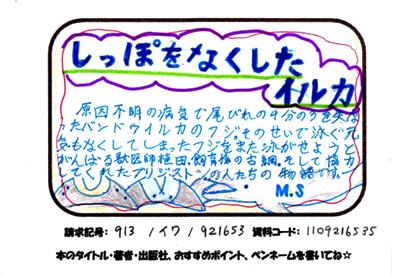 しっぽをなくした
イルカ
原因不明の病気で尾びれの4分の3を失な
ったバンドウイルカのフジ。そのせいで泳ぐ元
気もなくしてしまったフジをまた泳がせようと
がんばる獣医師植田、飼育係の古網、そして協力
してくれたブリジストンの人たちの物語です。
M.S
請求記号: 913 /イワ/ 921653 資料コード: 1109216535
本のタイトル・著者・出版社、おすすめポイント、ペンネームを書いてね☆